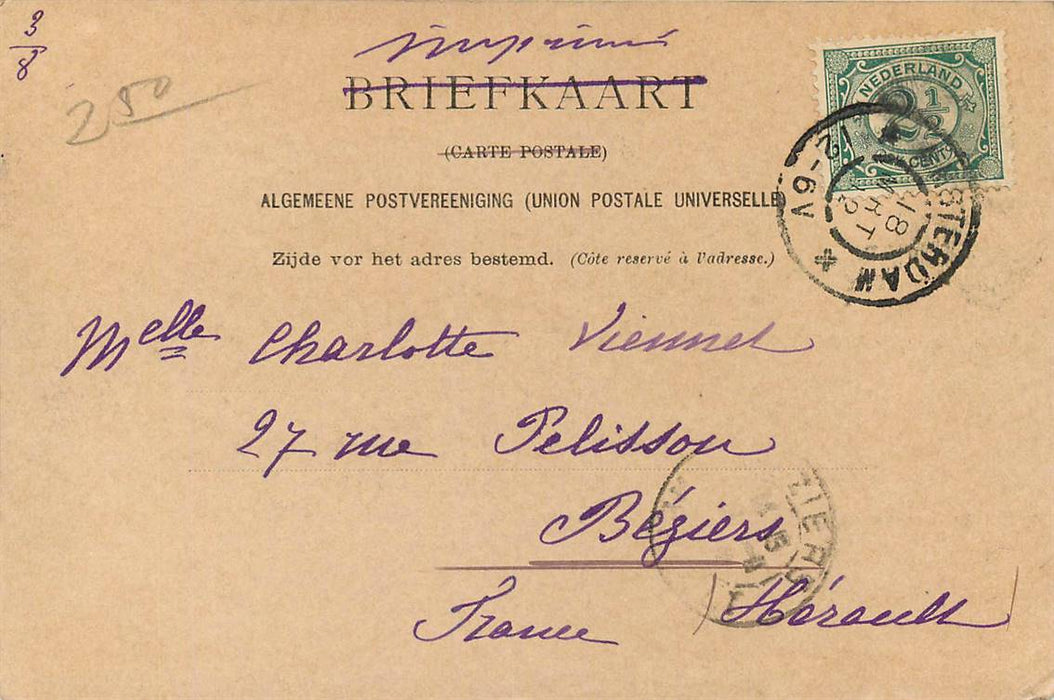 3/8
imprimé
250
BRIEFKAART
(CARTE POSTALE)
ALGEMEENE POSTVEREENIGING (UNION POSTALE UNIVERSELLE)
Zijde vor het adres bestemd. (Côte reservé à l'adresse.)
NEDERLAND
2½
CENT
AMSTERDAM
12-6V
18 MRT
Melle Charlotte Viennet
27 rue Pelisson
Béziers
France (Hérault)
ZIERS